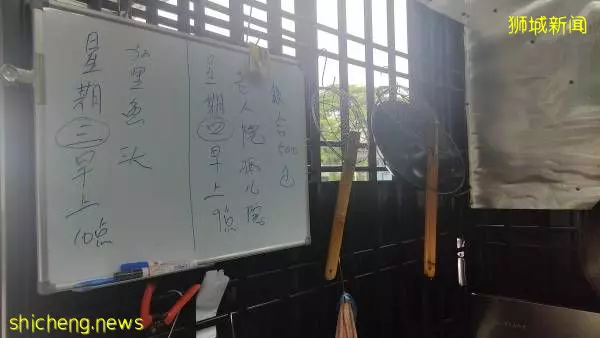 狮城新闻
星期三早上10点
加里鱼头
星期四早上9点
老人院孤儿院
500包
shicheng.news